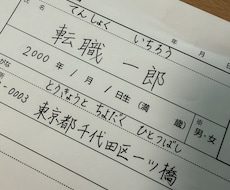 てんしょく いちろう
年 月
氏名
転職 一郎
2000年 1月 1日生 (満 歳) 男・女
とうきょうと ちよだく ひとつばし
0003
東京都千代田区一ツ橋